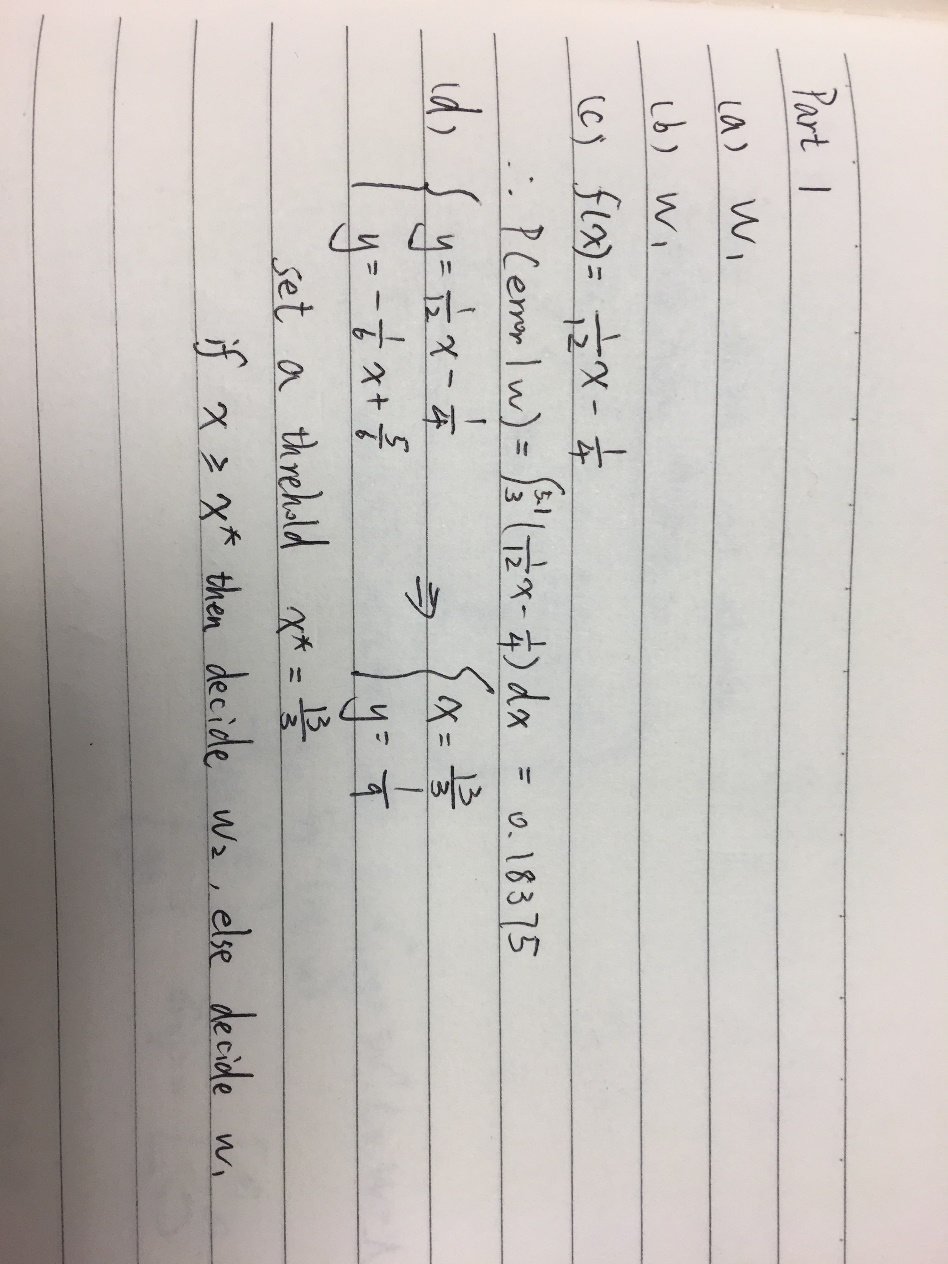 Part 1
(a) W₁
(b) W₁
(c) f(x) = 1/12 x - 1/4
∴ P(error|w) = ∫₃^5.1 (1/12 x - 1/4) dx = 0.18375
(d) { y = 1/12 x - 1/4 ⇒ { x = 13/3
y = - 1/6 x + 5/6 y = 1/9
set a threhold x* = 13/3
if x ≥ x* then decide W₂, else decide W₁